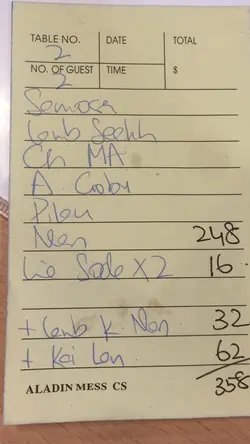 TABLE NO. DATE TOTAL
2
NO. OF GUEST TIME $
2
Samosa
Lamb Seekh
Ch MA
A Goby
Pilau
Nan 248
Lie Soda X2 16
+ Lamb K. Nan 32
+ Kai Lan 62
ALADIN MESS CS 358